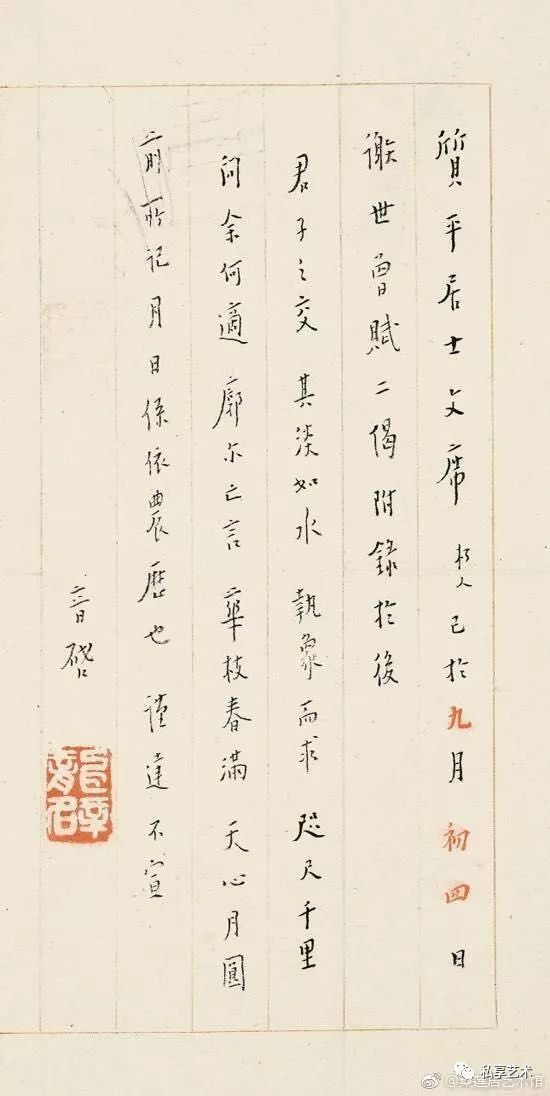 質平居士文席 朽人已於九月初四日
謝世曾賦二偈附錄於後
君子之交 其淡如水 執象而求 咫尺千里
问余何適 廓尔亡言 華枝春滿 天心月圓
前所記月日係依農歷也 謹達 不宣
音啓
私享艺术